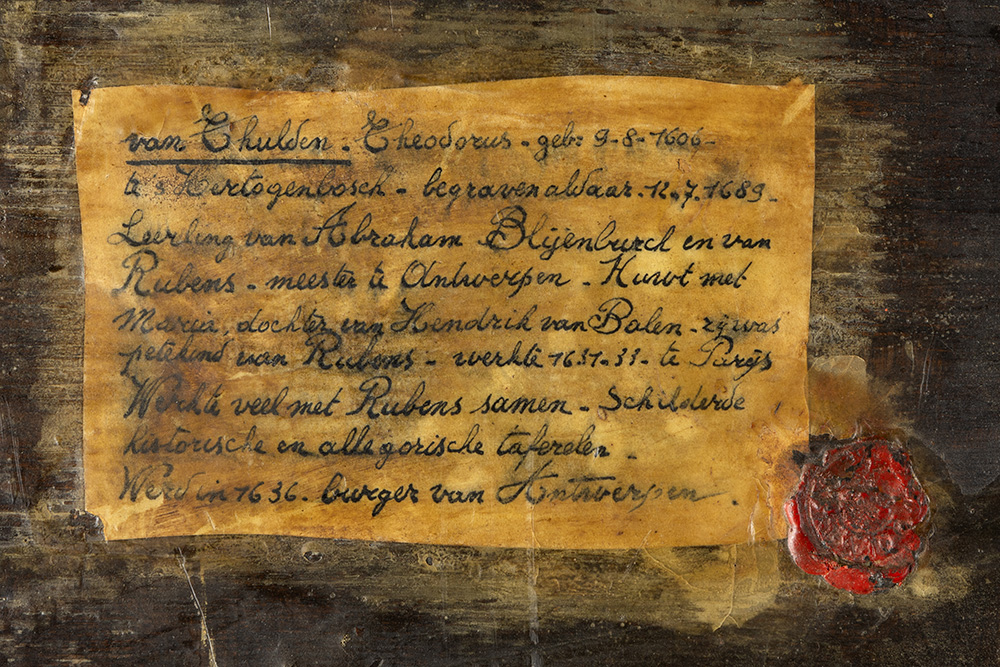 van Thulden. Theodorus - geb: 9-8-1606-
te s Hertogenbosch - begraven aldaar. 12.7.1689-
Leerling van Abraham Blijenburch en van
Rubens - meester te Antwerpen - Huwt met
Maria, dochter van Hendrik van Balen - zij was
petekind van Rubens - werkte 1631-33- te Parijs
Werkte veel met Rubens samen - Schilderde
historische en allegorische taferelen -
Werd in 1636. burger van Antwerpen.